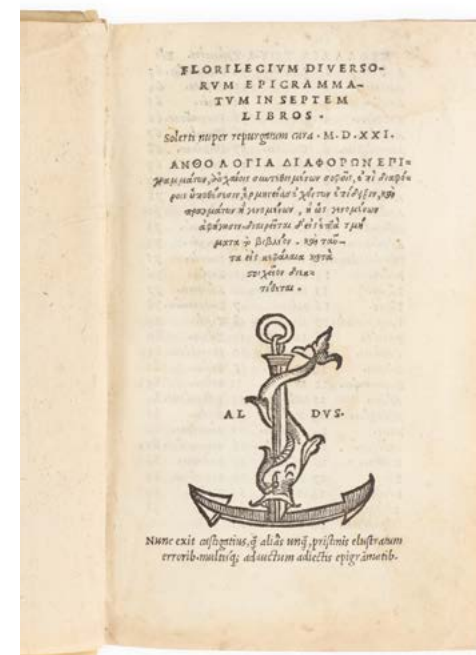 FLORILEGIVM DIVERSO-
RVM EPIGRAMMA-
TVM IN SEPTEM
LIBROS.
Solerti nuper repurgatum cura. M.D.XXI.
ΑΝΘΟΛΟΓΙΑ ΔΙΑΦΟΡΩΝ ΕΠΙ-
γραμμάτων, παλαιοῖς συντεθειμένων σοφοῖς, ἐπὶ διαφό-
ροις ὑποθέσεσιν, ἑρμηνείας ἐχόντων ἐπίδειξιν, καὶ
πραγμάτων ἢ γενομένων, ἢ ὡς γενομένων
ἀφήγησιν. διαιρεῖται δ' εἰς ἑπτὰ τμή
ματα τὸ βιβλίον. καὶ ταῦ-
τα εἰς κεφάλαια κατὰ
στοιχεῖον διεκ-
τίθεται.
AL DVS.
Nunc exit castigatius, q̃ aliàs unq̃, pristinis elustratum
errorib. multisq; adauctum adiectis epigrãmatib.